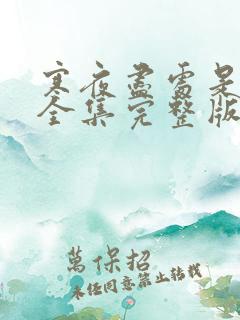 寒夜尽雷杲
全集完整版
萬保招
未经同意禁止转载